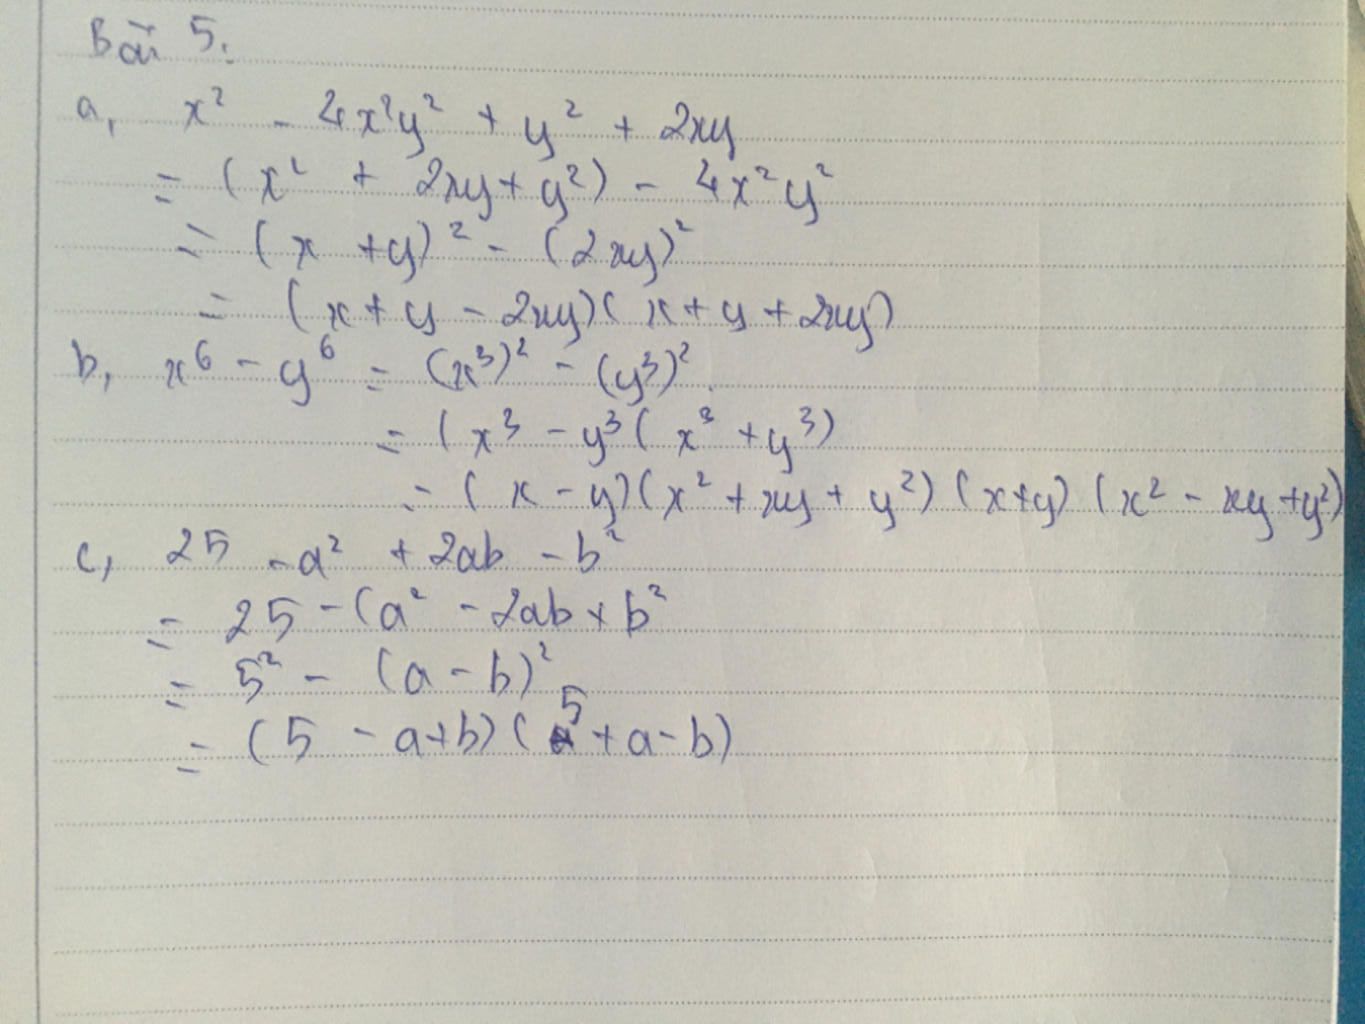 Bài 5:
a, x² - 4x²y² + y² + 2xy
= (x² + 2xy + y²) - 4x²y²
= (x + y)² - (2xy)²
= (x + y - 2xy)(x + y + 2xy)
b, x⁶ - y⁶ = (x³)² - (y³)².
= (x³ - y³(x³ + y³)
= (x - y)(x² + xy + y²)(x+y)(x² - xy + y²)
c, 25 - a² + 2ab - b²
= 25 - (a² - 2ab + b²
= 5² - (a - b)²
= (5 - a + b)(5 + a - b)